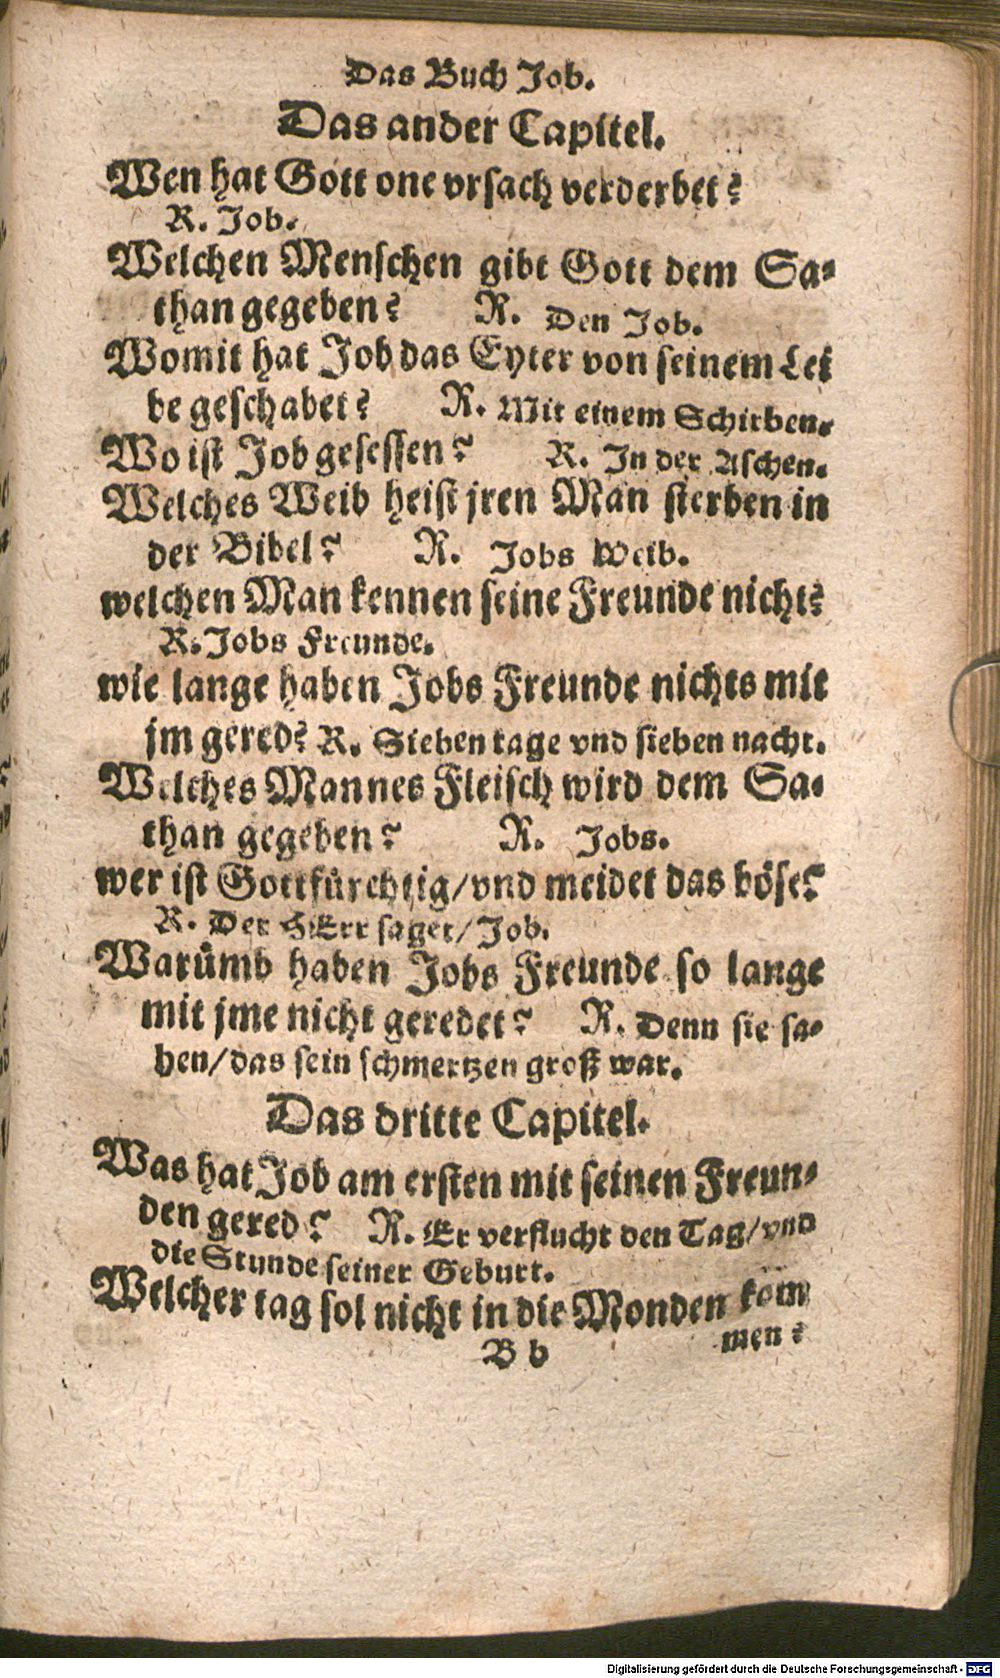 Das Buch Job.
Das ander Capitel.
Wen hat Gott one vrsach verderbet?
R. Job.
Welchen Menschen gibt Gott dem Sa-
than gegeben? R. Den Job.
Womit hat Job das Eyter von seinem Lei
be geschabet? R. Mit einem Schirben.
Wo ist Job gesessen? R. In der Aschen.
Welches Weib heist jren Man sterben in
der Bibel? R. Jobs Weib.
welchen Man kennen seine Freunde nicht?
R. Jobs Freunde.
wie lange haben Jobs Freunde nichts mit
jm gered? R. Sieben tage vnd sieben nacht.
Welches Mannes Fleisch wird dem Sa-
than gegeben? R. Jobs.
wer ist Gottfürchtig/vnd meidet das böse?
R. Der HErr saget/Job.
Warümb haben Jobs Freunde so lange
mit jme nicht geredet? R. Denn sie sa-
hen/das sein schmertzen groß war.
Das dritte Capitel.
Was hat Job am ersten mit seinen Freun-
den gered? R. Er verflucht den Tag/vnd
die Stunde seiner Geburt.
Welcher tag sol nicht in die Monden kom
men?
B b
Digitalisierung gefördert durch die Deutsche Forschungsgemeinschaft - DFG